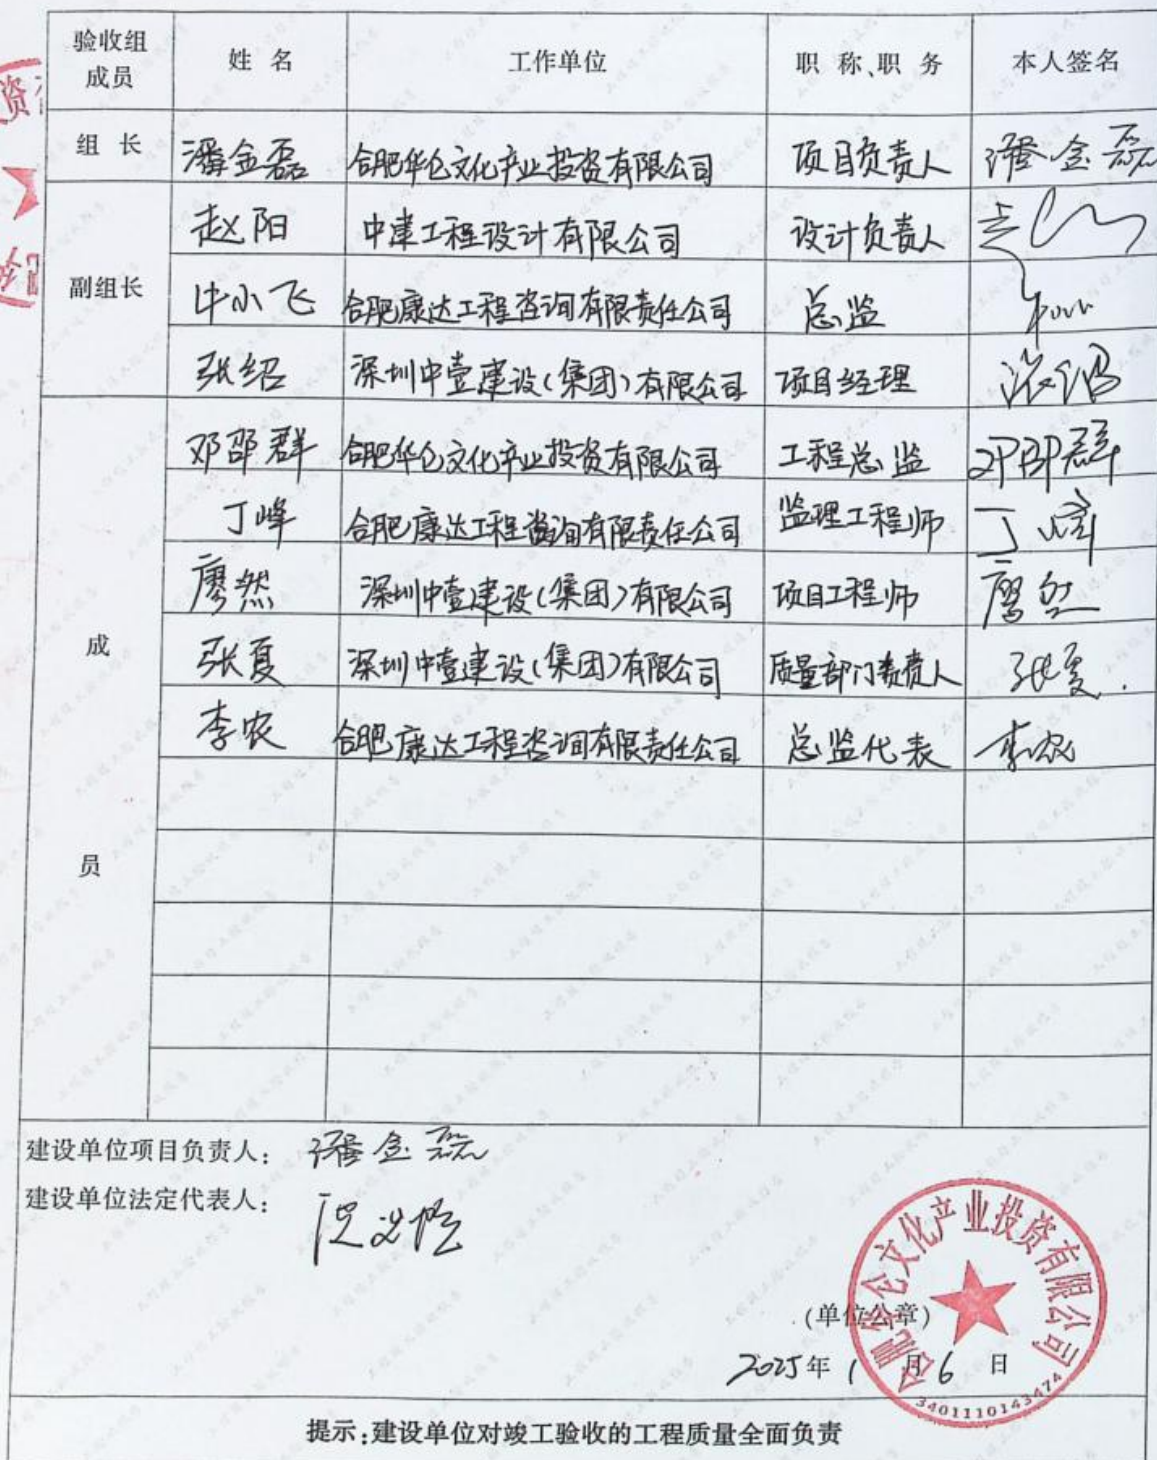 验收组成员 姓 名 工作单位 职 称、职 务 本人签名
组 长 潘金磊 合肥华仑文化产业投资有限公司 项目负责人 潘金磊
副组长
赵阳 中建工程设计有限公司 设计负责人
牛小飞 合肥康达工程咨询有限责任公司 总监
张绍 深圳中壹建设(集团)有限公司 项目经理 张绍
成员
邓邵群 合肥华仑文化产业投资有限公司 工程总监 邓邵群
丁峰 合肥康达工程咨询有限责任公司 监理工程师 丁峰
廖然 深圳中壹建设(集团)有限公司 项目工程师 廖然
张夏 深圳中壹建设(集团)有限公司 质量部门责责人 张夏
李农 合肥康达工程咨询有限责任公司 总监代表 李农
建设单位项目负责人: 潘金磊
建设单位法定代表人:
合肥华仑文化产业投资有限公司
(单位公章)
2025年1月6日
3401110143474
提示:建设单位对竣工验收的工程质量全面负责